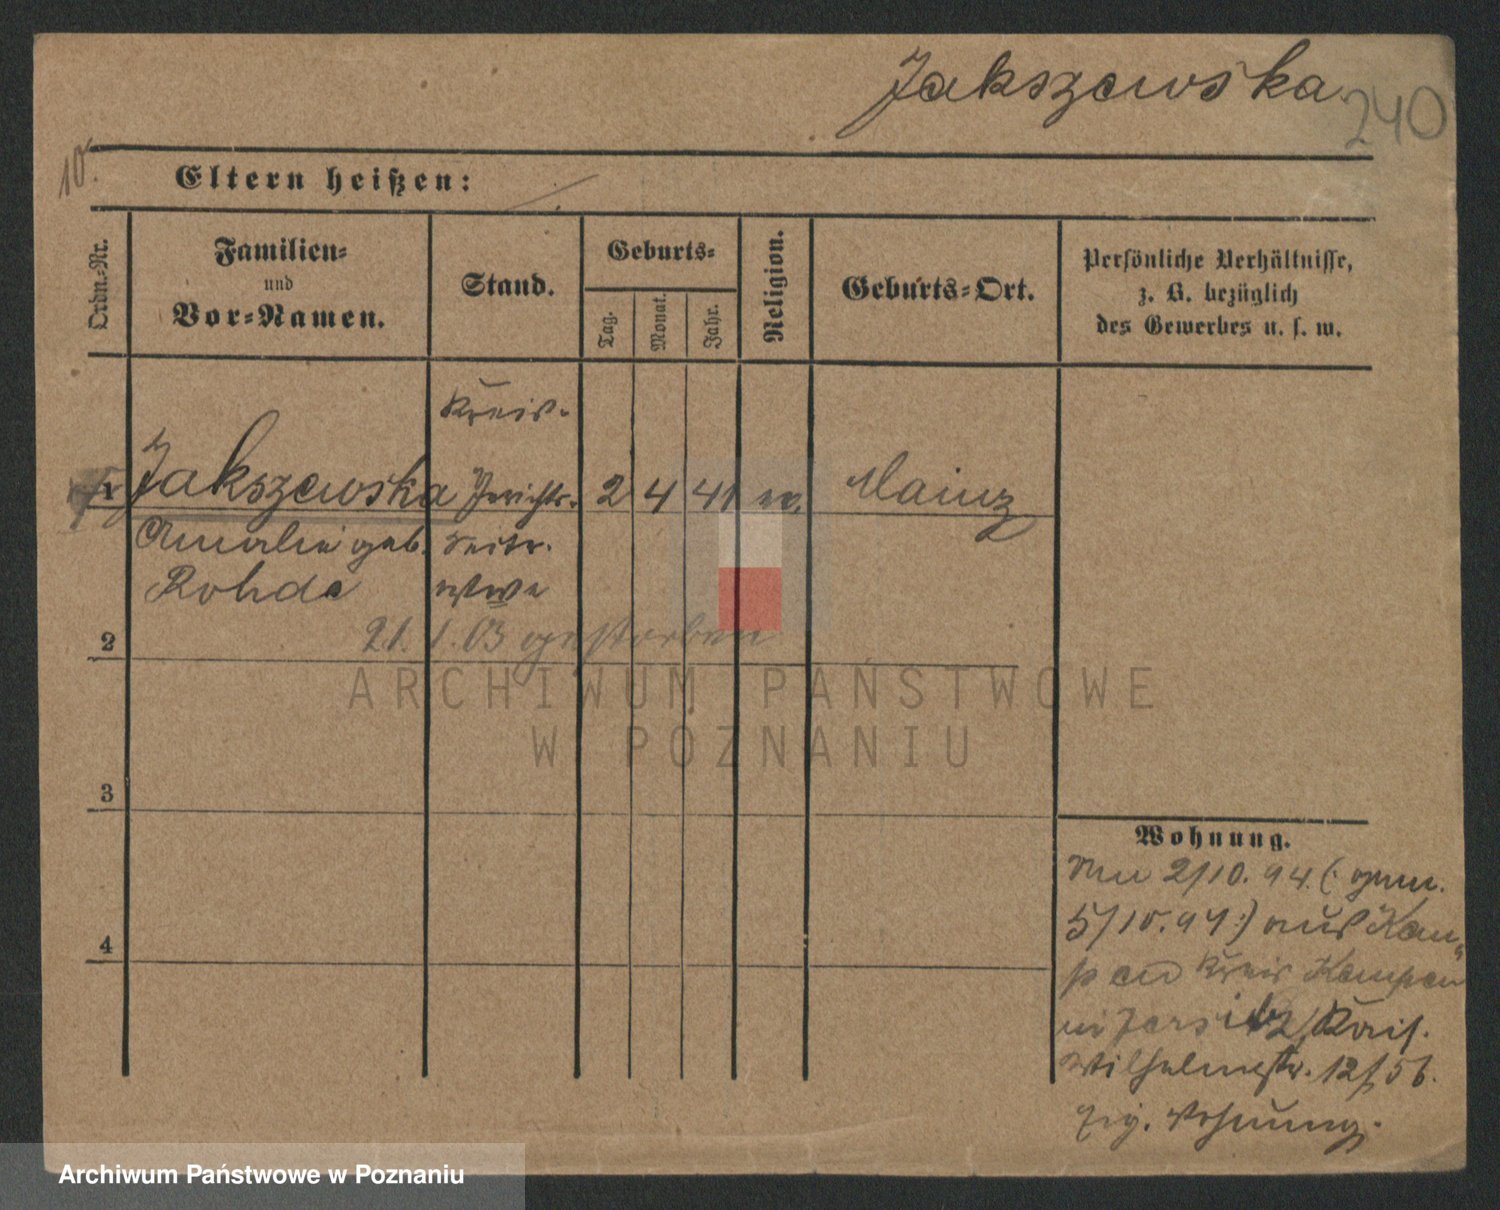 Jakszewska
240
10.
Eltern heißen:
Ordn.=Nr.
Familien=
und
Vor=Namen.
Stand.
Geburts=
Tag.
Monat.
Jahr.
Religion.
Geburts=Ort.
Persönliche Verhältnisse,
z. B. bezüglich
des Gewerbes u. s. w.
Kreis-
1 Jakszewska Gerichts- 2 4 41 ev. Mainz
Amalie geb. Sekr.
Rohde Wwe
2 21.1.03 gestorben
ARCHIWUM PAŃSTWOWE
W POZNANIU
3
4
Wohnung.
2/10. 94. (: gem.
5/10. 94 :) aus Kem-
pen Kreis Kempen
in Jersitz, Kais.
Wilhelmstr. 12/
Wohnung.
Archiwum Państwowe w Poznaniu